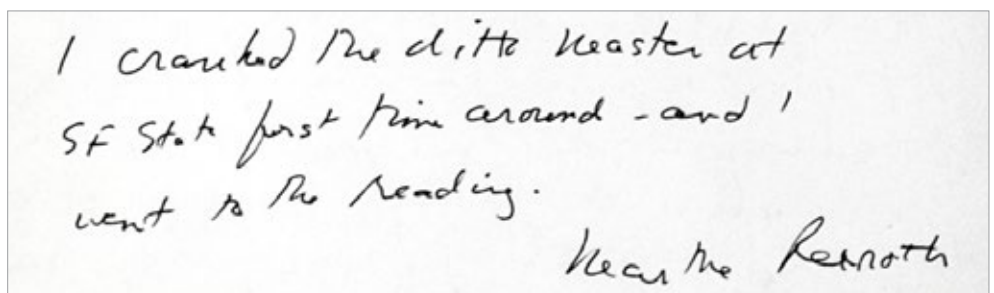 I cranked the ditto master at
SF State first time around - and I
went to the reading.
Marthe Rexroth